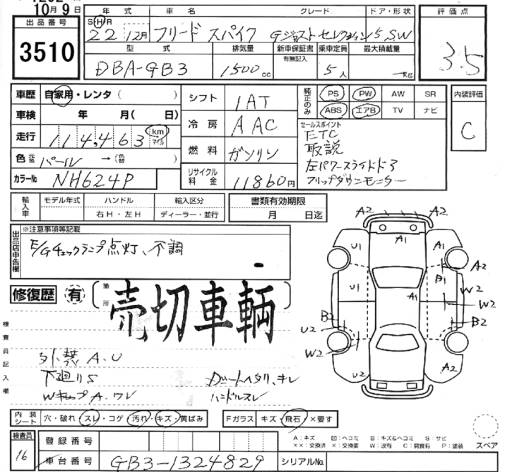 10月9日
出品番号
3510
年式 グレード ドア・形状
S H R 22年 12月 フリード スパイク Gジャストセレクション 5 SW
評価点
3.5
型式 排気量 新車保証書 有無記入 乗車定員 最大積載量
DBA-GB3 1500cc 5人
車歴 自家用・レンタ( )
車検 年 月( 日)
走行 114,463 km マイル
色 パール
カラーNo NH624P
シフト 1AT
冷房 AAC
燃料 ガソリン
リサイクル料金 11860円
純正のみ PS PW AW SR
ABS エアB TV ナビ
セールスポイント
ETC
取説
左パワースライドドア
フリップダウンモニター
内装評価
C
輸入車 モデル年式 ハンドル 輸入区分
右H・左H ディーラー・並行
書類有効期限
月 日迄
出品店申告欄
※注意事項等記載
E/Gチェックランプ点灯、不調
修復歴 有 箇所
売切車輌
検査員記入欄
外装A.U
下廻りS
Wキップ A.ワレ
シートヘタリ、キレ
ハンドルスレ
A2 A2
U1 A1 A2
U1 A1 B1
W2 W2
B2
U2 A1
W2 W2
内装シート 穴・破れ スレ・コゲ 汚れ・キズ・黄ばみ Fガラス キズ・飛石 ×要す
検査員
16
登録番号
車台番号 GB3-1324829 シリアルNo.
A:キズ U:凹ヘコミ B:キズ&ヘコミ S:サビ
××:交換済 ×:要交換 W:波 C:腐食 P:塗装
スペア